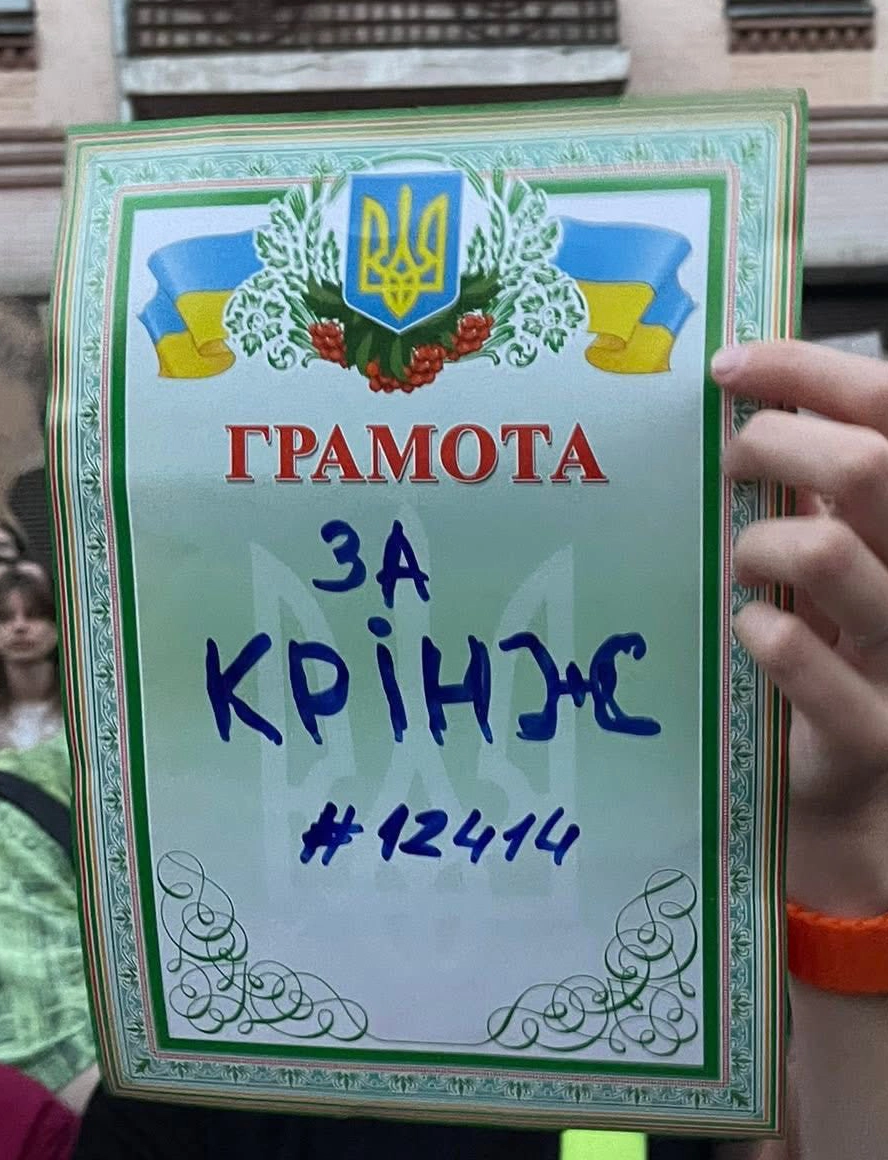 ГРАМОТА
ЗА
КРІНЖ
#12414